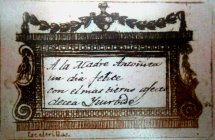 A la Madre Antonina
un dia felice
con el mas tierno afecto
desea